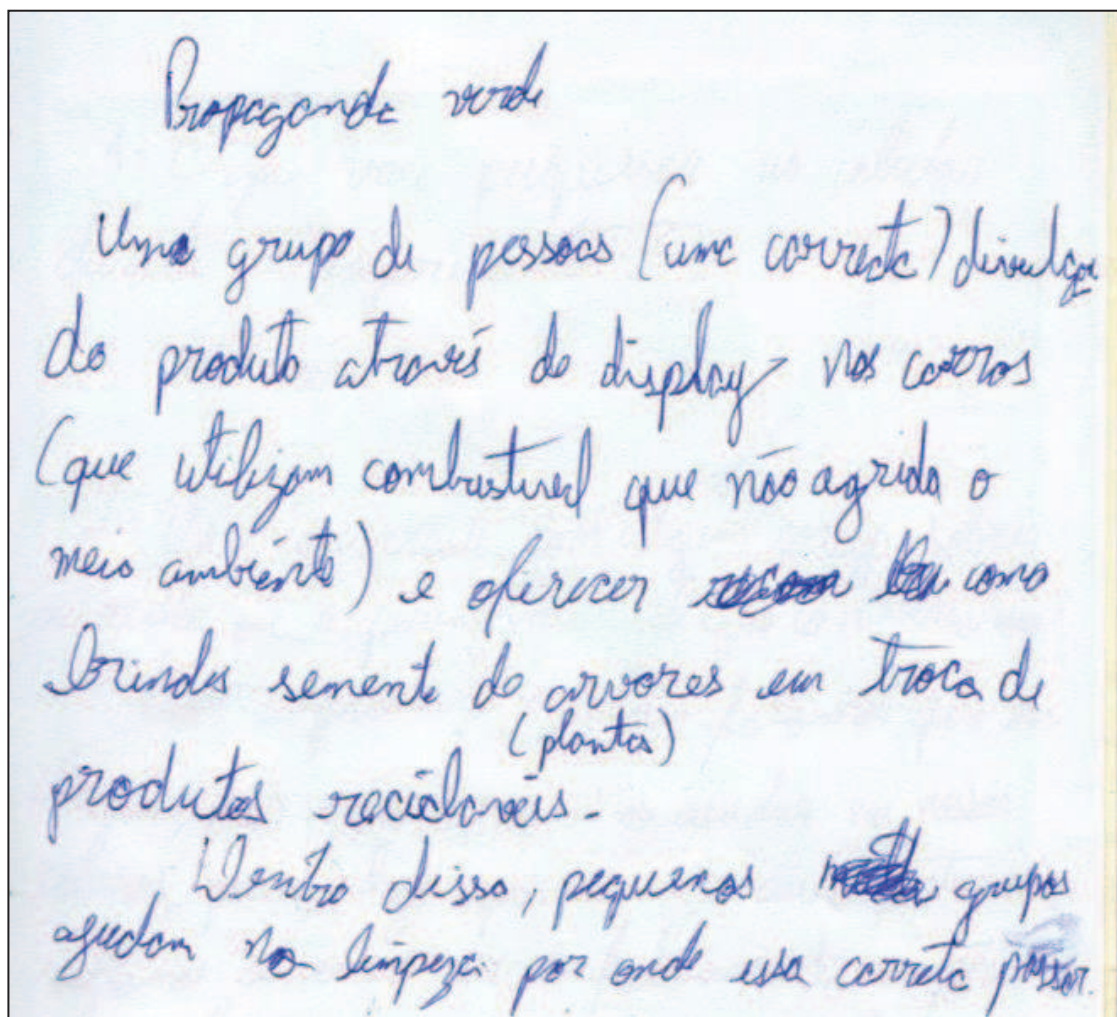 Propaganda verde
Uma grupo de pessoas (uma carreata) divulgar
do produto através de display nos carros
(que utilizam combustivel que não agrida o
meio ambiente) e oferecer como
brindes semente de arvores em troca de
(plantas)
produtos recicláveis.
Dentro disso, pequenos grupos
ajudam na limpeza por onde essa carreta passar.